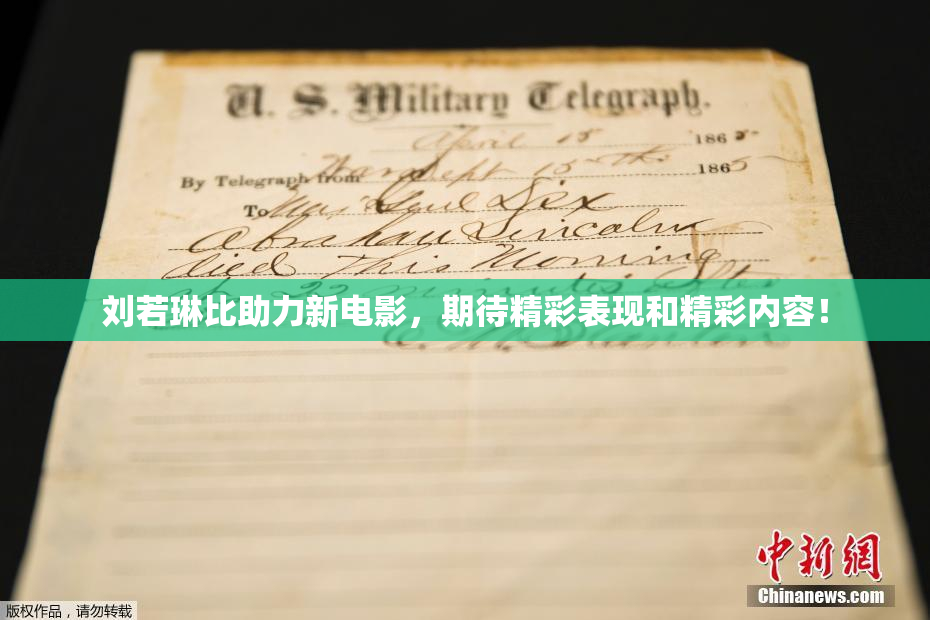 U. S. Military Telegraph.
April 15 1865
By Telegraph from War Dept 15th 1865
To Maj Genl Dix
Abraham Lincoln
died This Morning
at 22 minutes after
刘若琳比助力新电影，期待精彩表现和精彩内容！
E. M. Stanton
中新网
Chinanews.com
版权作品，请勿转载